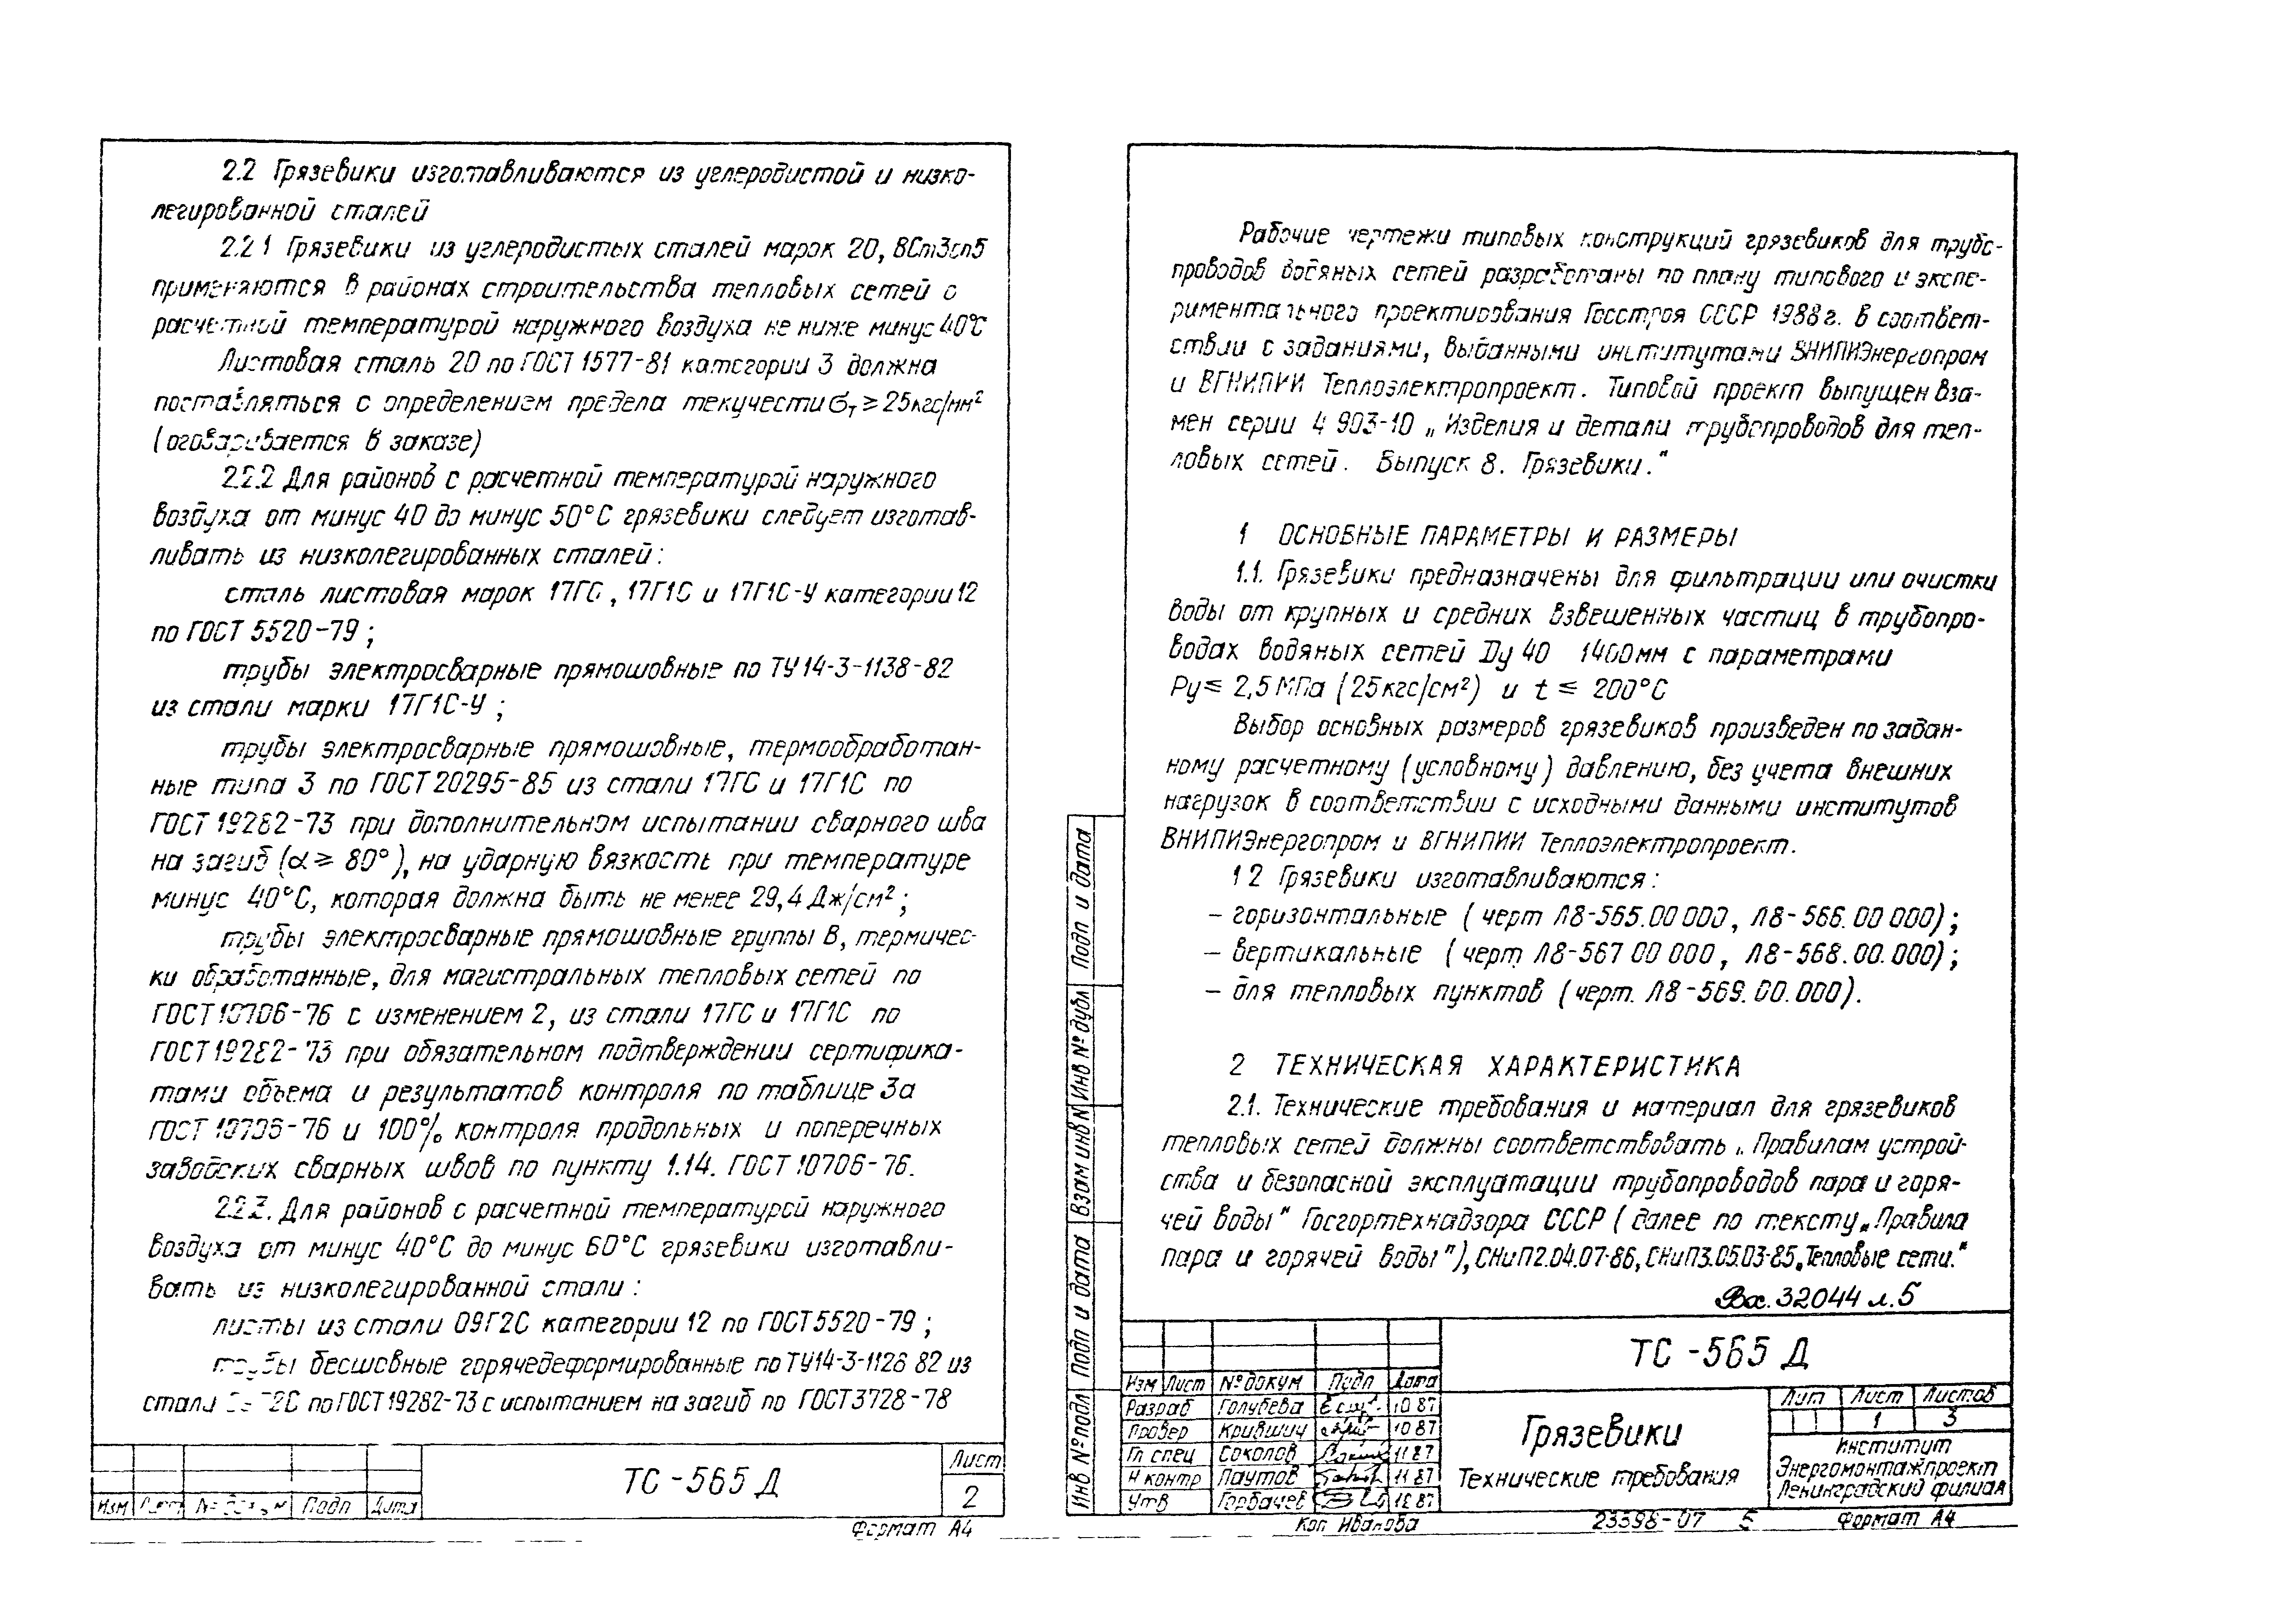 2.2 Грязевики изготавливаются из углеродистой и низко-
легированной сталей
2.2.1 Грязевики из углеродистых сталей марок 20, ВСт3сп5
применяются в районах строительства тепловых сетей с
расчетной температурой наружного воздуха не ниже минус 40°С
Листовая сталь 20 по ГОСТ 1577-81 категории 3 должна
поставляться с определением предела текучести σт ≥ 25 кгс/мм²
(оговаривается в заказе)
2.2.2 Для районов с расчетной температурой наружного
воздуха от минус 40 до минус 50°С грязевики следует изготав-
ливать из низколегированных сталей:
сталь листовая марок 17ГС, 17Г1С и 17Г1С-У категории 12
по ГОСТ 5520-79;
трубы электросварные прямошовные по ТУ14-3-1138-82
из стали марки 17Г1С-У;
трубы электросварные прямошовные, термообработан-
ные типа 3 по ГОСТ 20295-85 из стали 17ГС и 17Г1С по
ГОСТ 19282-73 при дополнительном испытании сварного шва
на загиб (α ≥ 80°), на ударную вязкость при температуре
минус 40°С, которая должна быть не менее 29,4 Дж/см²;
трубы электросварные прямошовные группы В, термичес-
ки обработанные, для магистральных тепловых сетей по
ГОСТ 10706-76 с изменением 2, из стали 17ГС и 17Г1С по
ГОСТ 19282-73 при обязательном подтверждении сертифика-
тами объема и результатов контроля по таблице 3а
ГОСТ 10706-76 и 100% контроля продольных и поперечных
заводских сварных швов по пункту 1.14. ГОСТ 10706-76.
2.2.3. Для районов с расчетной температурой наружного
воздуха от минус 40°С до минус 60°С грязевики изготавли-
вать из низколегированной стали:
листы из стали 09Г2С категории 12 по ГОСТ 5520-79;
трубы бесшовные горячедеформированные по ТУ14-3-1128 82 из
стали 09Г2С по ГОСТ 19282-73 с испытанием на загиб по ГОСТ 3728-78
Изм Лист № докум Подп Дата
ТС-565 Д
Лист
2
Формат А4
Рабочие чертежи типовых конструкций грязевиков для трубо-
проводов водяных сетей разработаны по плану типового и экспе-
риментального проектирования Госстроя СССР 1988г. в соответ-
ствии с заданиями, выданными институтами ВНИПИЭнергопром
и ВГНИПИИ Теплоэлектропроект. Типовой проект выпущен вза-
мен серии 4 903-10 „Изделия и детали трубопроводов для теп-
ловых сетей. Выпуск 8. Грязевики."
1 ОСНОВНЫЕ ПАРАМЕТРЫ И РАЗМЕРЫ
1.1. Грязевики предназначены для фильтрации или очистки
воды от крупных и средних взвешенных частиц в трубопро-
водах водяных сетей Ду 40 1400мм с параметрами
Ру ≤ 2,5 МПа (25кгс/см²) и t ≤ 200°С
Выбор основных размеров грязевиков произведен по задан-
ному расчетному (условному) давлению, без учета внешних
нагрузок в соответствии с исходными данными институтов
ВНИПИЭнергопром и ВГНИПИИ Теплоэлектропроект.
1 2 Грязевики изготавливаются:
– горизонтальные (черт Л8-565.00 000, Л8-566.00 000);
– вертикальные (черт Л8-567 00 000, Л8-568.00.000);
– для тепловых пунктов (черт. Л8-569.00.000).
2 ТЕХНИЧЕСКАЯ ХАРАКТЕРИСТИКА
2.1. Технические требования и материал для грязевиков
тепловых сетей должны соответствовать „Правилам устрой-
ства и безопасной эксплуатации трубопроводов пара и горя-
чей воды" Госгортехнадзора СССР (далее по тексту „Правила
пара и горячей воды"), СНиП2.04.07-86, СНиП3.05.03-85 „Тепловые сети."
Вх. 32044 л. 5
Подп и дата
Инв № дубл
Взам инв №
Подп и дата
Инв № подл
ТС-565 Д
Изм Лист № докум Подп Дата
Разраб Голубева 10 87
Провер Крившич 10 87
Гл спец Соколов 11 87
Н контр Паутов 11 87
Утв Горбачев 12 87
Грязевики
Технические требования
Лит Лист Листов
1 3
Институт
Энергомонтажпроект
Ленинградский филиал
Коп Иванова
23398-07 5
Формат А4